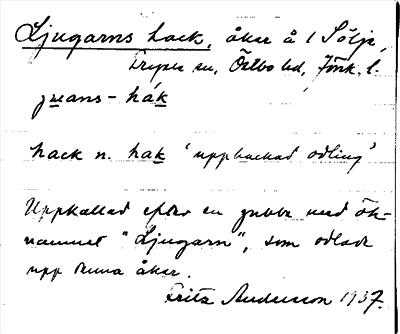 Ljugarns hack, åker å 1 Sölje,
Fryele sn, Östbo hd, Jönk. l.
juans-håk
hack n. hak 'upphackad odling'
Uppkallad efter en gubbe med ök-
namnet "Ljugarn", som odlade
upp denna åker.
Fritz Andersson 1937.